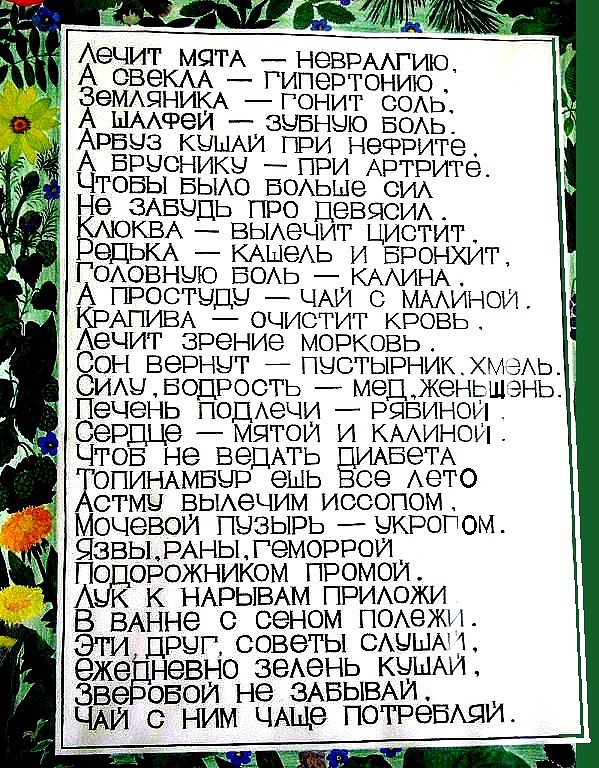 Лечит мята — невралгию,
А свекла — гипертонию,
Земляника — гонит соль,
А шалфей — зубную боль.
Арбуз кушай при нефрите,
А бруснику — при артрите.
Чтобы было больше сил
Не забудь про девясил.
Клюква — вылечит цистит,
Редька — кашель и бронхит,
Головную боль — калина,
А простуду — чай с малиной.
Крапива — очистит кровь,
Лечит зрение морковь.
Сон вернут — пустырник, хмель.
Силу, бодрость — мед, женьшень.
Печень подлечи — рябиной,
Сердце — мятой и калиной.
Чтоб не ведать диабета
Топинамбур ешь все лето
Астму вылечим иссопом,
Мочевой пузырь — укропом.
Язвы, раны, геморрой
Подорожником промой.
Лук к нарывам приложи
В ванне с сеном полежи.
Эти, друг, советы слушай,
ежедневно зелень кушай,
Зверобой не забывай,
Чай с ним чаще потребляй.